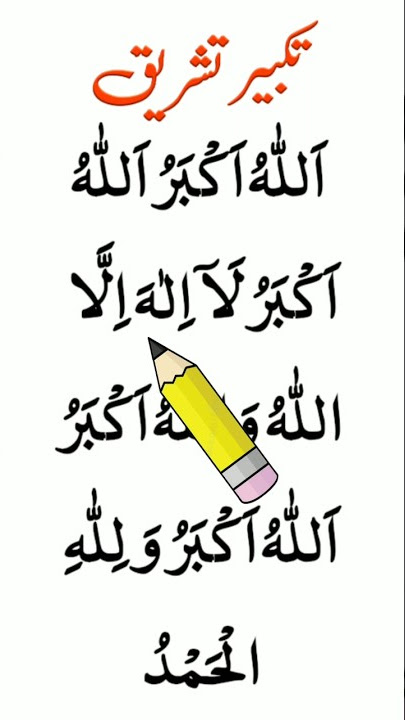 تکبیر تشریق
اَللّٰهُ اَكْبَرُ اَللّٰهُ
اَكْبَرُ لَآ اِلٰهَ اِلَّا
اللّٰهُ وَاللّٰهُ اَكْبَرُ
اَللّٰهُ اَكْبَرُ وَ لِلّٰهِ
الْحَمْدُ